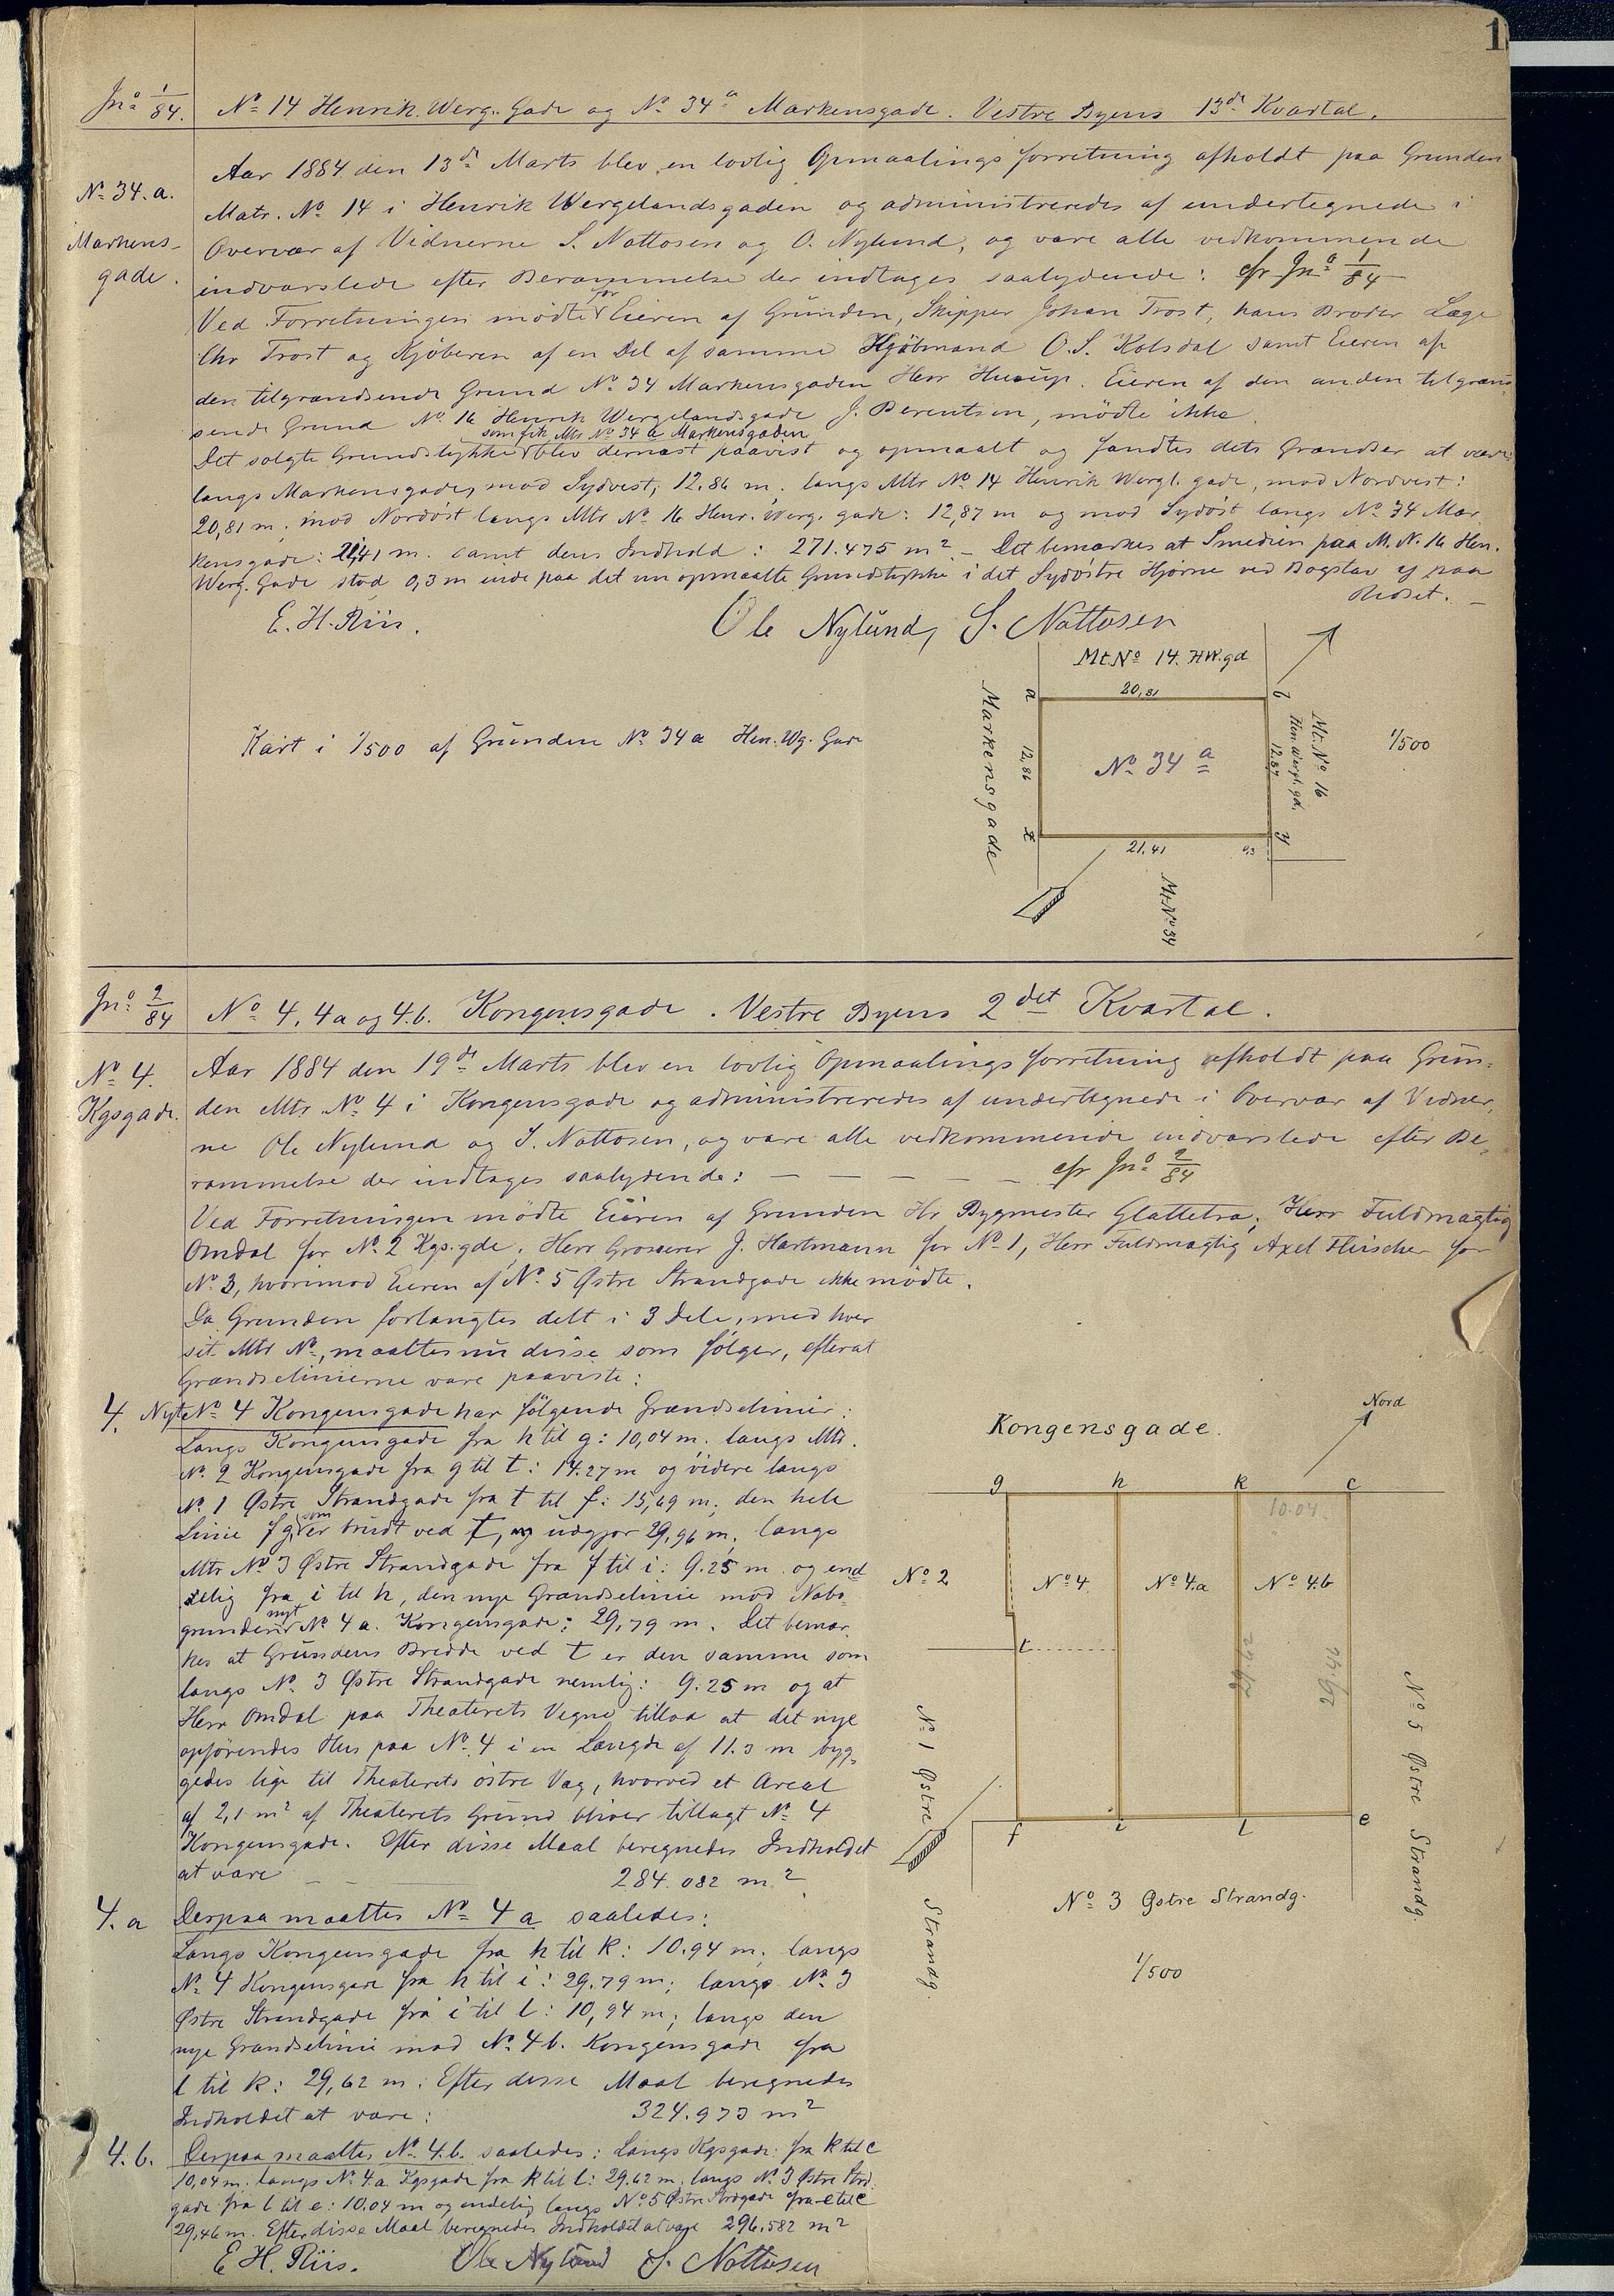 1
Jno 1/84. No 14 Henrik. Werg. Gade og No 34a Markensgade. Vestre Byens 13de Kvartal.
No 34.a.
Markens-
gade.
Aar 1884 den 13de Marts blev en lovlig Opmaalingsforretning afholdt paa Grunden
Matr. No 14 i Henrik Wergelandsgaden og administreredes af undertegnede i
Overvær af Vidnerne S. Nottosen og O. Nylund, og vare alle vedkommende
indvarslede efter Berammelse der indtages saalydende: cfr Jno 1/84
Ved Forretningen mödte for Eieren af Grunden, Skipper Johan Trost, hans Broder Læge
Chr Trost og Kjöberen af en Del af samme Kjöbmand O.S. Kolsdal samt Eieren af
den tilgrændsende Grund No 34 Markensgaden Herr Husup. Eieren af den anden tilgrænd
sende Grund No 16 Henrik Wergelandsgade J. Berentsen, mödte ikke
som fik Mtr No 34 a Markensgaden
Det solgte Grundstykke blev dernæst paavist og opmaalt og fandtes dets Grændser at være:
langs Markensgade, mod Sydvest; 12.86 m. langs Mtr No 14 Henrik Wergl. gade, mod Nordvest:
20,81 m. mod Nordöst langs Mtr No 16 Henr. Werg. gade: 12,87 m og mod Sydöst langs No 34 Mar
kensgade: 21,41 m. samt dens Indhold: 271.475 m2 - Det bemærkes at Smedien paa M. N. 16 Hen.
Werg. Gade stod 0,3 m inde paa det nu opmaalte Grundstykke i det Sydöstre Hjörne ved Bogstav y paa
Ridset. -
E. H. Riis. Ole Nylund, S. Nottosen
Kart i 1/500 af Grunden No 34a Hen. Wg. Gade
Mt No 14. HW.gd
a 20,81 b
Markensgade
12,86
No 34 a
12.87
Mt. No 16
Hen. Wergl. gd.
1/500
x 21.41 0,3 y
Mt. No 34
Jno 2/84 No 4, 4a og 4.b. Kongensgade. Vestre Byens 2det Kvartal.
No 4.
Kgsgade.
Aar 1884 den 19de Marts blev en lovlig Opmaalingsforretning afholdt paa Grun-
den Mtr No 4 i Kongensgade og administreredes af undertegnede i Overvær af Vidner,
ne Ole Nylund og S. Nottosen, og vare alle vedkommende indvarslede efter Be-
rammelse der indtages saalydende: - - - - - cfr Jno 2/84
Ved Forretningen mödte Eieren af Grunden Hr Bygmester Glattetra; Herr Fuldmægtig
Omdal for No 2 Kgs.gde, Herr Grosserer J. Hartmann for No 1, Herr Fuldmægtig Axel Fleischer for
No 3, hvorimod Eieren af No 5 Østre Strandgade ikke mödte.
Da Grunden forlangtes delt i 3 Dele, med hver
sit Mtr No, maaltes nu disse som fölger, efterat
Grændselinierne vare paaviste:
4. Nyt No 4 Kongensgade har fölgende Grændselinier:
Langs Kongensgade fra h til g: 10,04 m. langs Mtr.
No. 2 Kongensgade fra g til t: 14.27 m og videre langs
No 1 Østre Strandgade fra t til f: 15,69 m, den hele
Linie fg, som er brudt ved t, udgjør 29,96 m; langs
Mtr No 3 Østre Strandgade fra f til i: 9.25 m og end
delig fra i til h, den nye Grændselinie mod Nabo-
grunden nyt No 4 a. Kongensgade: 29,79 m. Det bemær,
kes at Grundens Bredde ved t er den samme som
langs No 3 Østre Strandgade nemlig: 9.25 m og at
Herr Omdal paa Theaterets Vegne tillod at det nye
opförendes Hus paa No 4 i en Længde af 11.3 m byg-
gedes lige til Theaterets östre Væg, hvorved et Areal
af 2,1 m2 af Theaterets Grund bliver tillagt No 4
Kongensgade. Efter disse Maal beregnedes Indholdet
at være 284.082 m2
4. a Derpaa maaltes No 4 a saaledes:
Langs Kongensgade fra h til k: 10.94 m; langs
No 4 Kongensgade fra h til i: 29.79 m; langs No 3
Østre Strandgade fra i til l: 10,94 m; langs den
nye Grændselinie mod No 4 b. Kongensgade fra
l til k: 29,62 m. Efter disse Maal beregnedes
Indholdet at være: 324.973 m2
4. b. Derpaa maaltes No 4.b. saaledes: Langs Kgsgade: fra k til c
10,04 m. langs No 4.a Kgsgade fra k til l: 29.62 m. langs No 3 Østre Strd.
gade fra l til e: 10.04 m og endelig langs No 5 Østre Strdgade fra e til c
29,46 m. Efter disse Maal beregnedes Indholdet at være 296.582 m2
E. H. Riis. Ole Nylund S. Nottosen
Nord
Kongensgade.
g h k c
10.04
No 2 No 4 No 4.a No 4.b
t
29,62
29,46
No 1 Østre Strandg.
No 5 Østre Strandg.
f i l e
No 3 Østre Strandg.
1/500